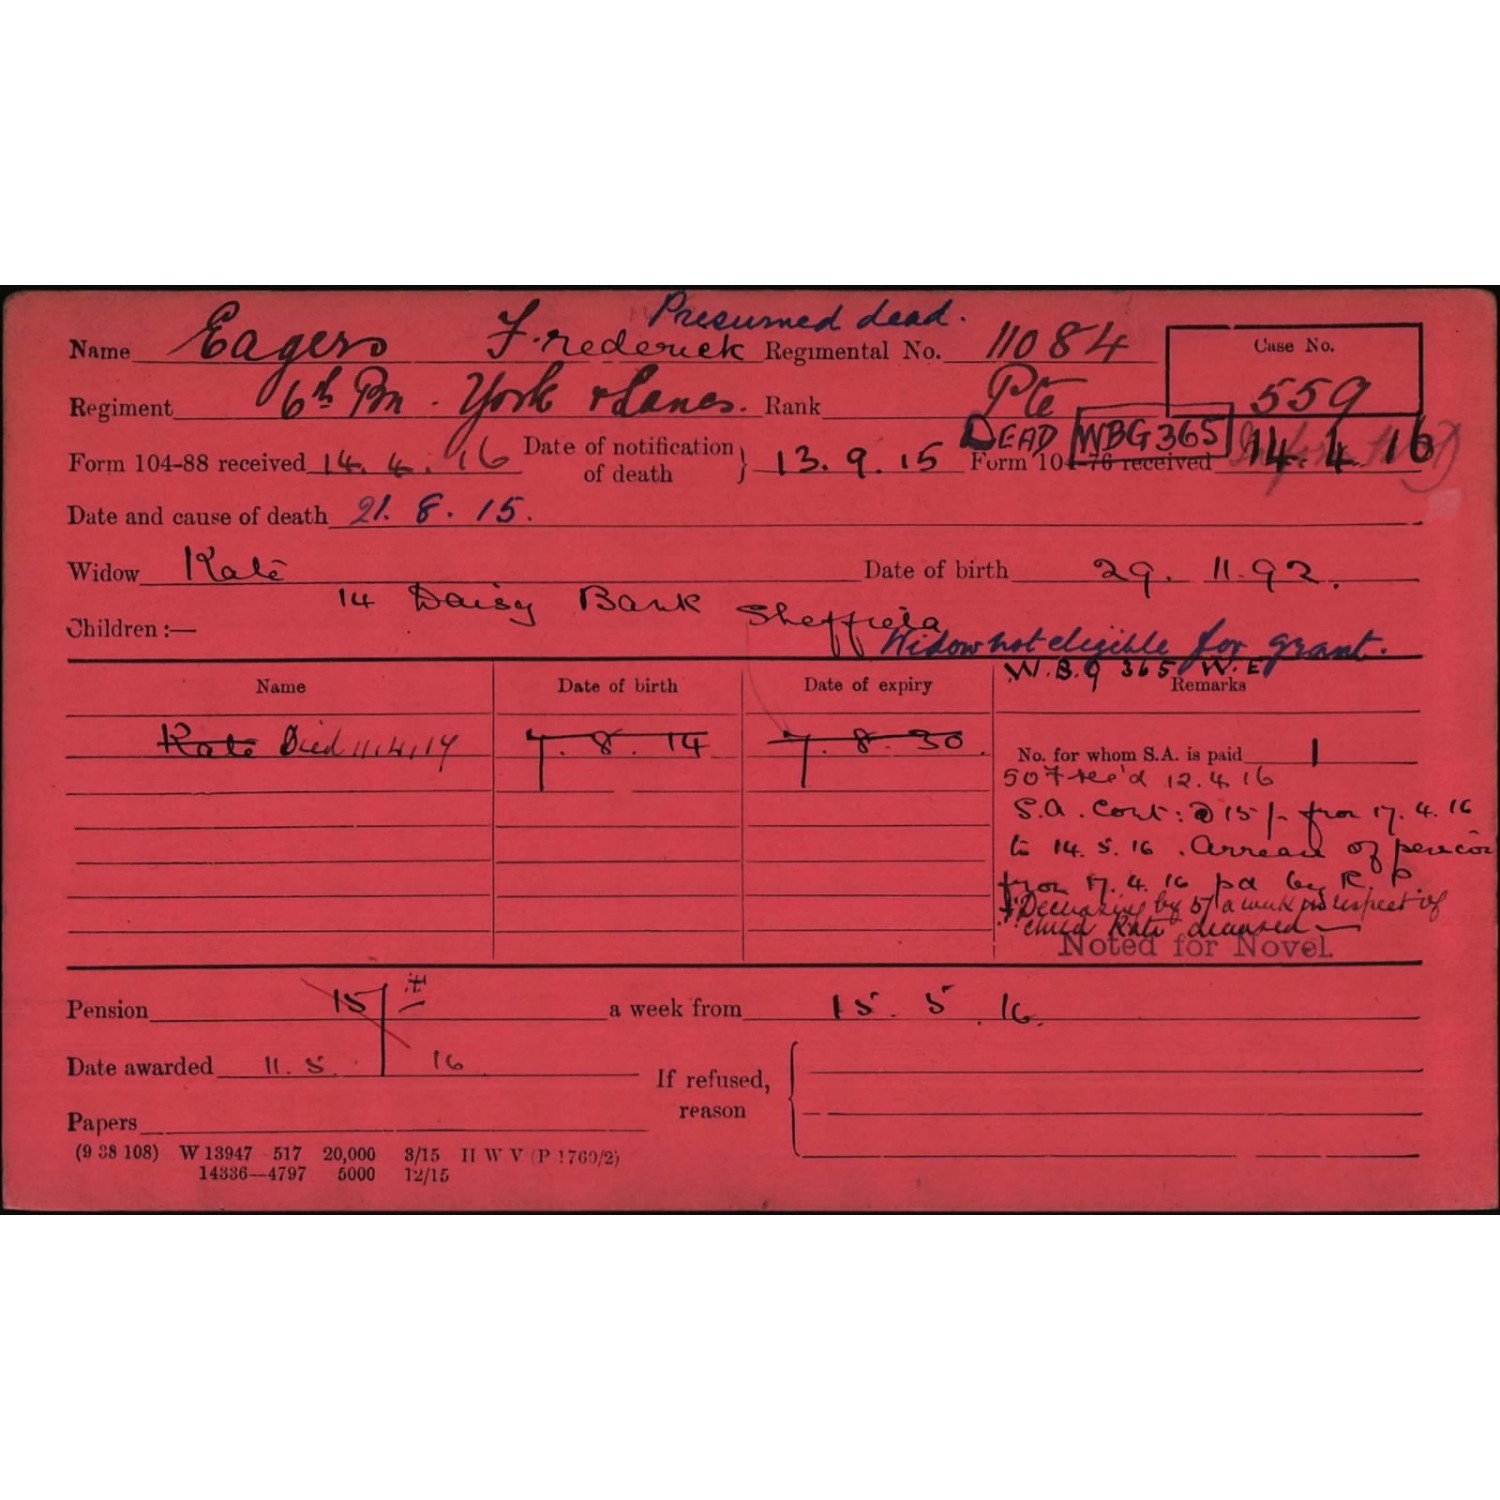 Presumed dead.
Name Eagers Frederick Regimental No. 11084 Case No.
Regiment 6th Bn. York & Lancs. Rank Pte 559
DEAD WBG 365
Form 104-88 received 14. 4. 16 Date of notification of death } 13. 9. 15 Form 104-76 received 14. 4. 16
Date and cause of death 21. 8. 15.
Widow Kate Date of birth 29. 11. 92.
14 Daisy Bank Sheffield
Children :—
Widow not eligible for grant.
W.B.G 365 W.E
Name Date of birth Date of expiry Remarks
Kate Died 11.4.17 7. 8. 14 7. 8. 30
No. for whom S.A. is paid 1
507 rec'd 12.4.16
S.A. Cont: @ 15/- from 17. 4. 16
to 14. 5. 16. Arrears of pension
from 17. 4. 16 pd by R. P.
Decreasing by 5/ a week in respect of
child Kate deceased
Noted for Novel.
Pension 15/- a week from 15. 5. 16.
Date awarded 11. 5. 16 If refused, reason
Papers
(9 38 108) W 13947 517 20,000 3/15 H W V (P 1760/2)
14336—4797 5000 12/15